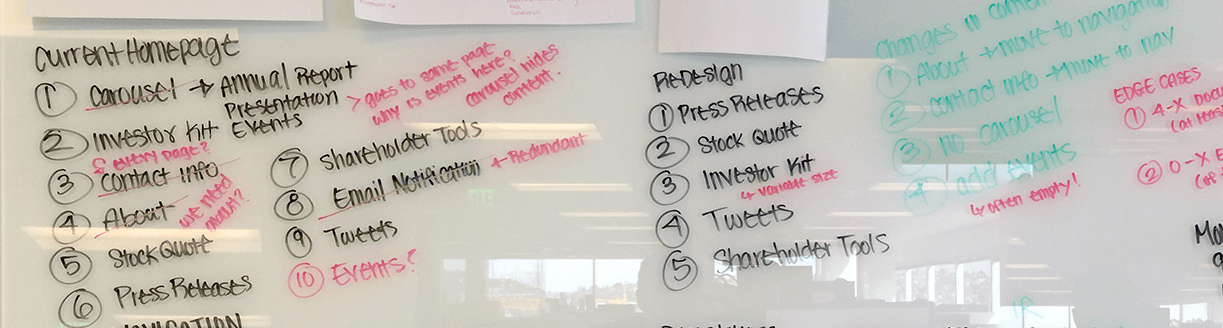 Current Homepage
① Carousel → Annual Report
Presentation
Events
> goes to same page
why is events here?
carousel hides
content.
② Investor Kit
↳ every page?
③ Contact Info
④ About
we need
⑤ Stock Quote
⑥ Press Releases
NAVIGATION
⑦ Shareholder Tools
⑧ Email Notification → Redundant
⑨ Tweets
⑩ Events?
ReDesign
① Press Releases
② Stock Quote
③ Investor Kit
↳ variable size
④ Tweets
⑤ Shareholder Tools
Changes in content
① About → move to navigation
② contact info → move to nav
③ no carousel
④ add events
↳ often empty!
EDGE CASES
① 4-X DOCU
② 0-X E